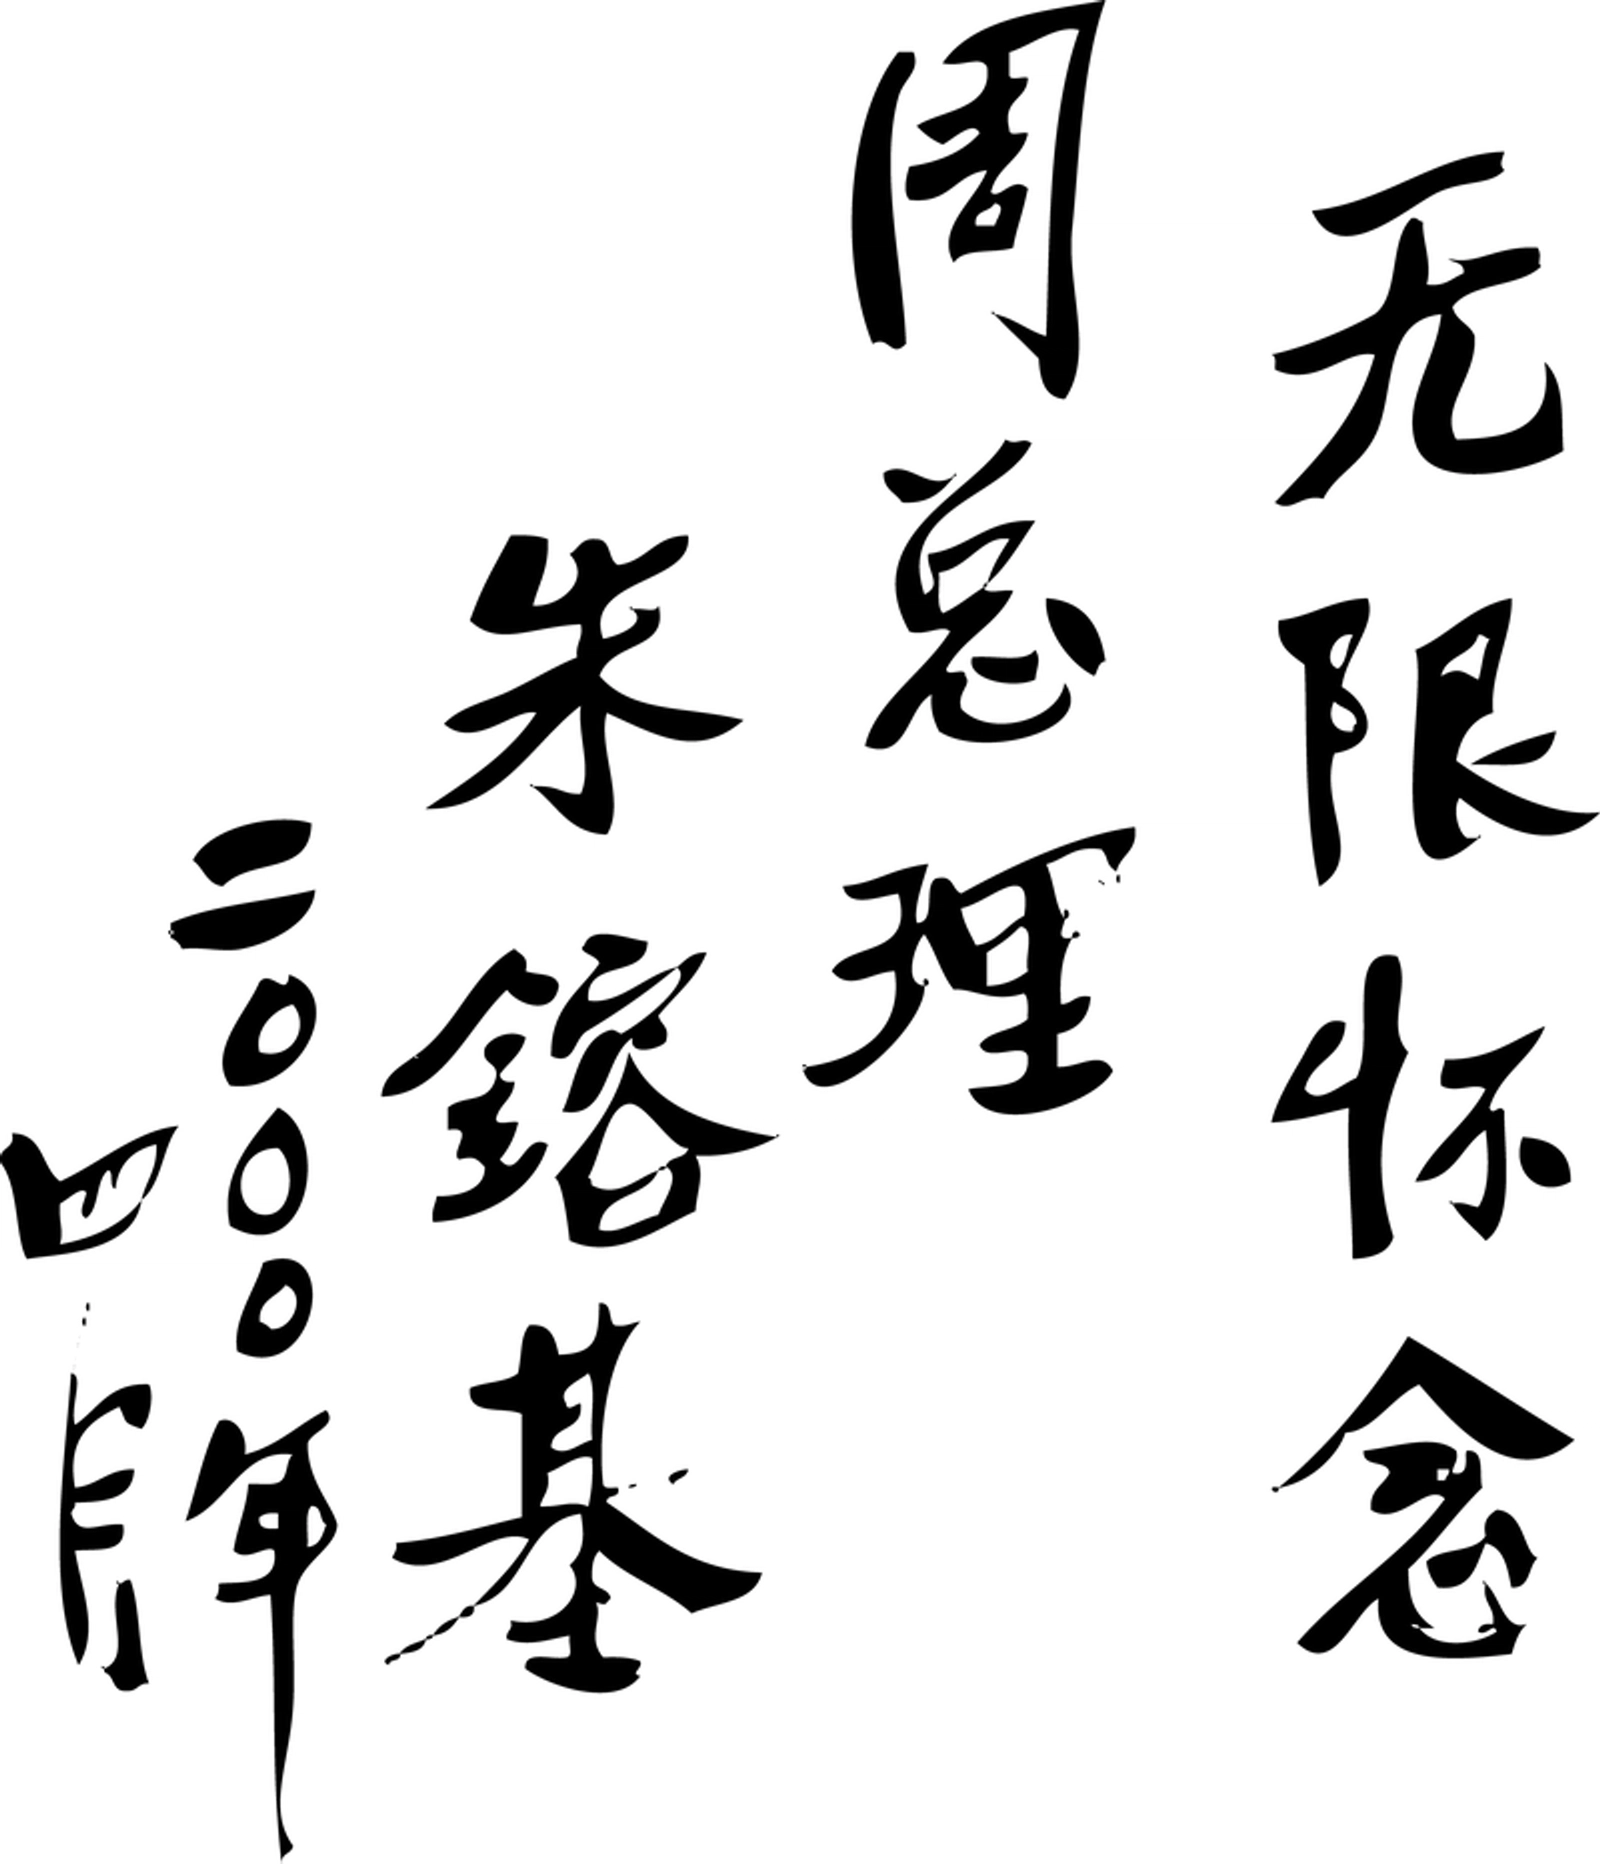 无限怀念
周总理
朱镕基
二〇〇〇年
四月